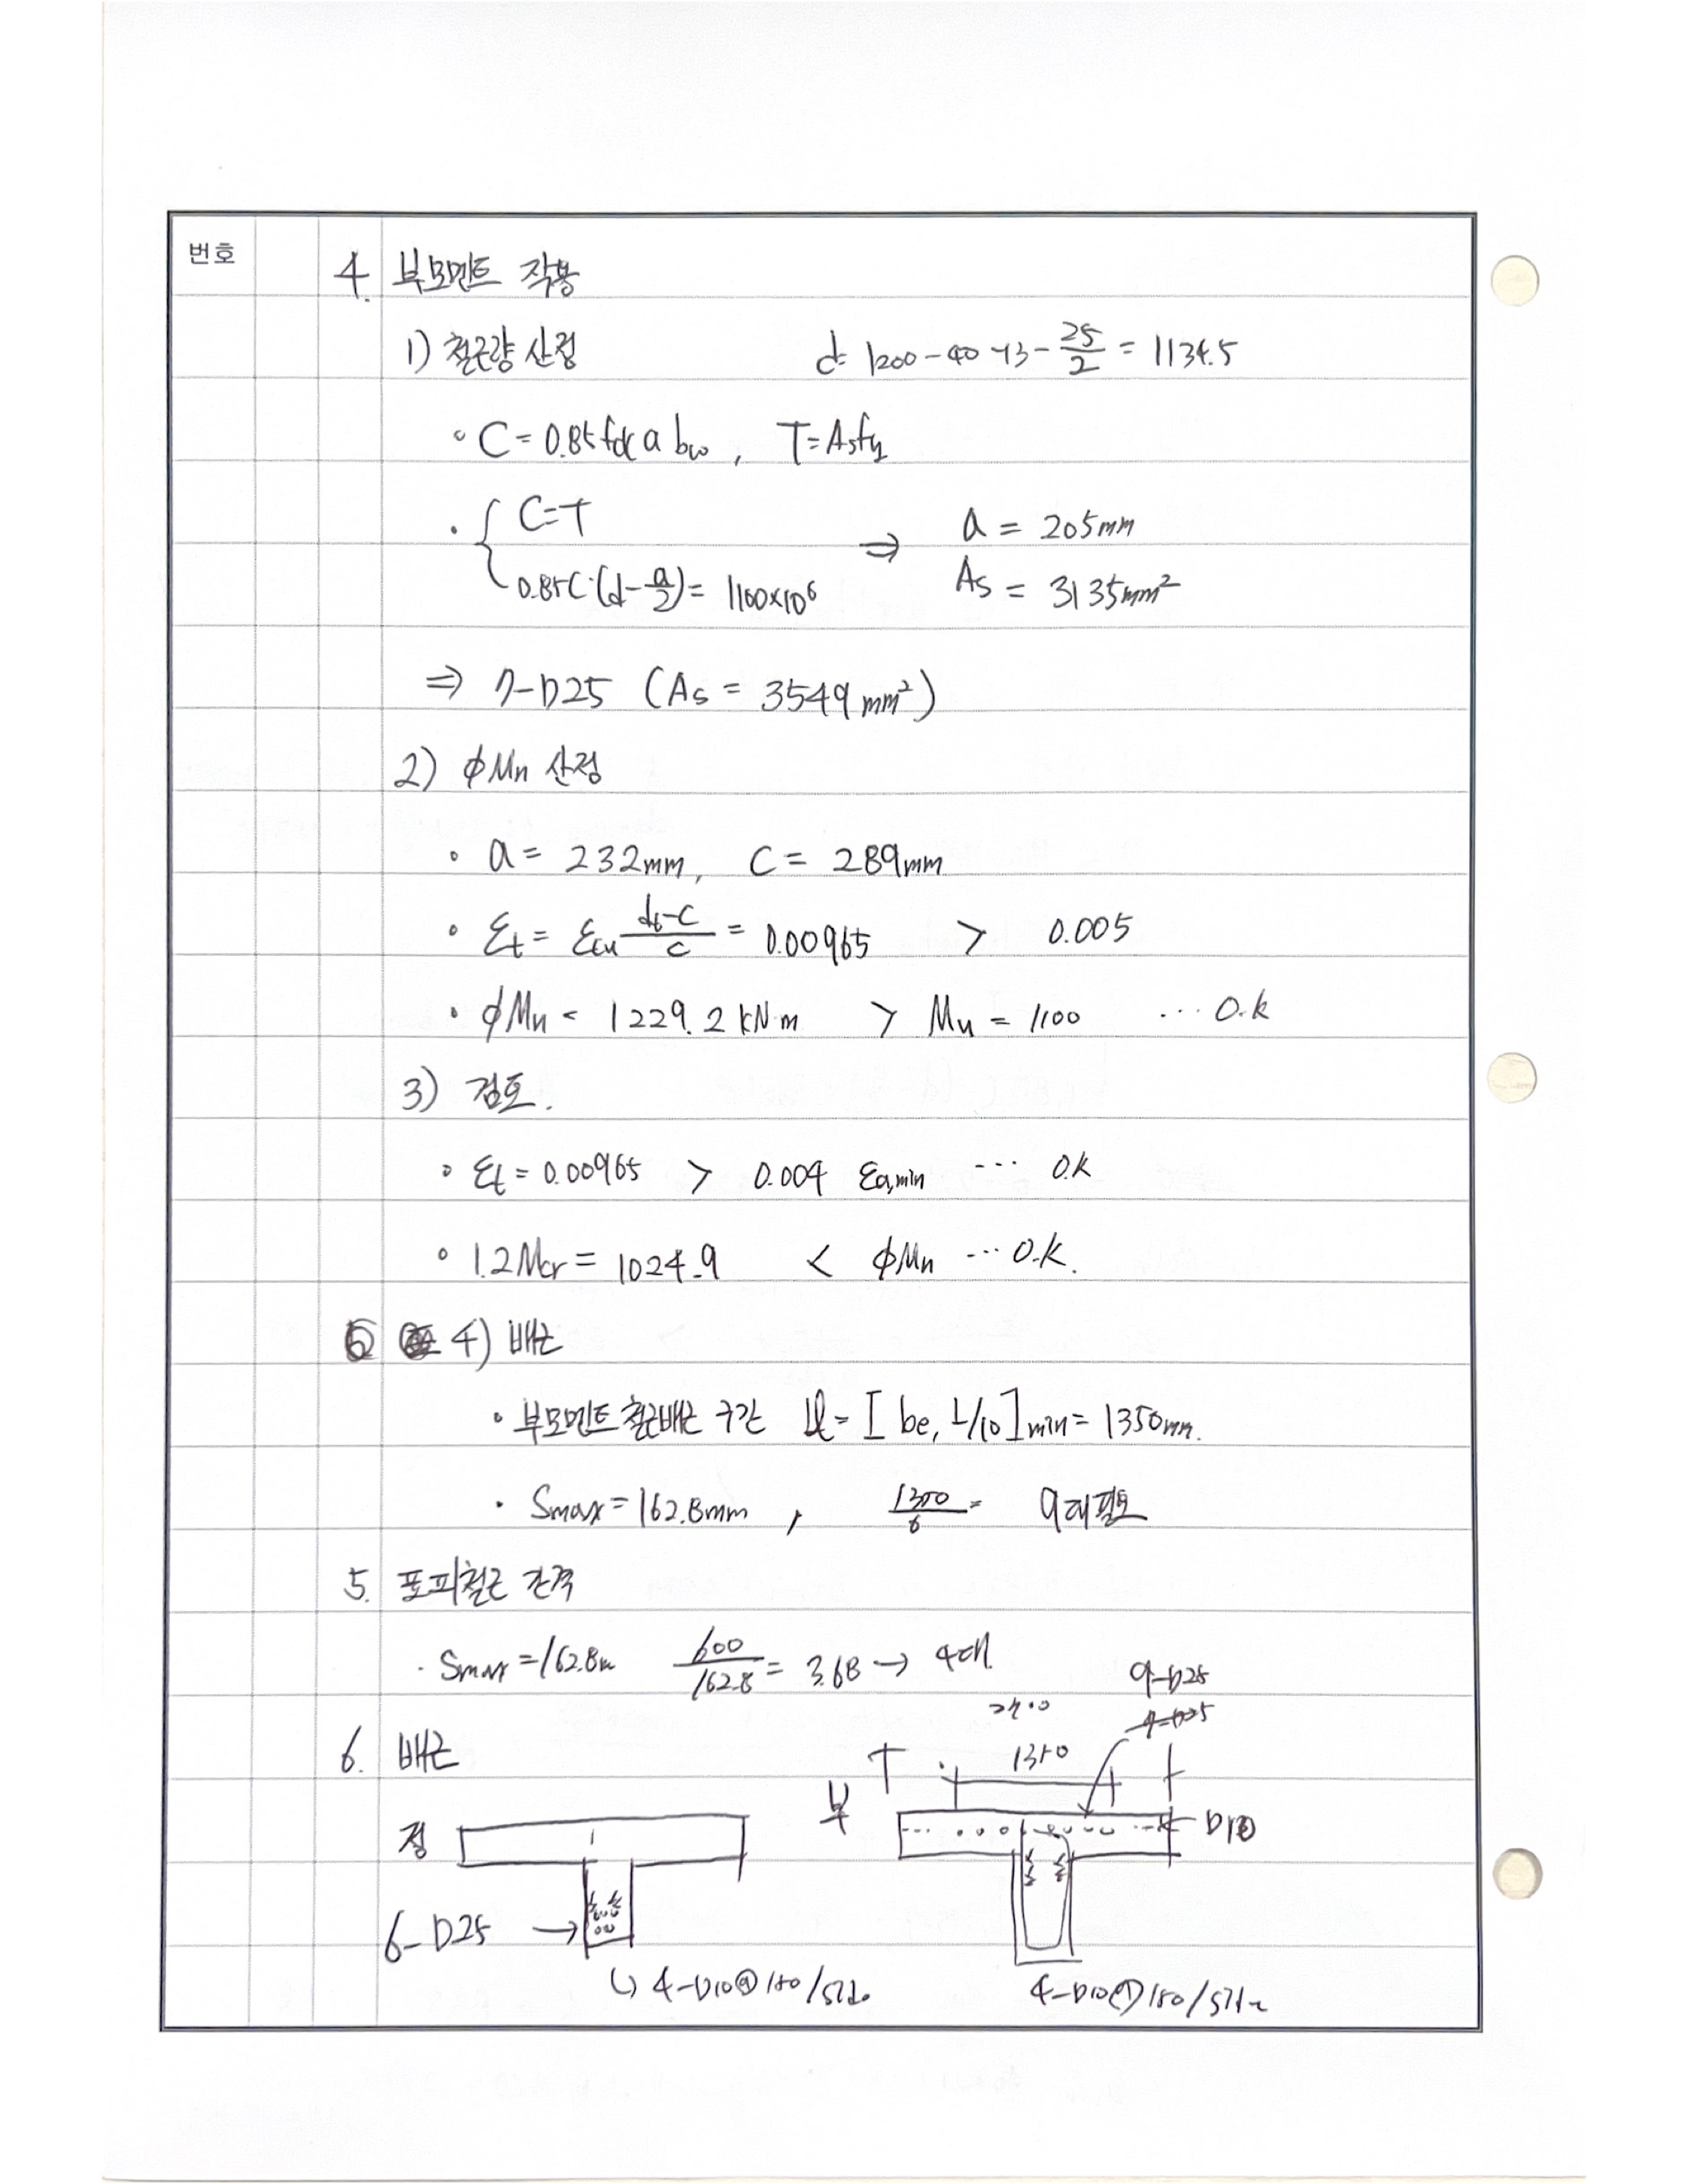 번호
4. 부모멘트 작용
1) 철근량 산정 d= 1200-40-13-25/2 = 1134.5
∘ C = 0.85fck a bw, T=Asfy
· { C=T ⇒ a = 205mm
0.85C·(d-a/2) = 1100×10⁶ As = 3135mm²
⇒ 7-D25 (As = 3549mm²)
2) φMn 산정
∘ a = 232mm, c = 289mm
∘ εt = εcu (dt-c)/c = 0.00965 > 0.005
· φMn = 1229.2 kN·m > Mu = 1100 ··· O.k
3) 검토.
∘ εt = 0.00965 > 0.004 εa,min ··· O.k
∘ 1.2Mcr = 1024.9 < φMn ··· O.K.
4) 배근
· 부모멘트 철근배근 구간 = [be, L/10]min = 1350mm.
· Smax = 162.8mm, 1350/6 = 9대필요
5. 표피철근 간격
· Smax = 162.8m 600/162.8 = 3.68 → 4대
6. 배근
9-D25
1350
정
부
D10
6-D25 →
4-D10@150/side
4-D10@150/side